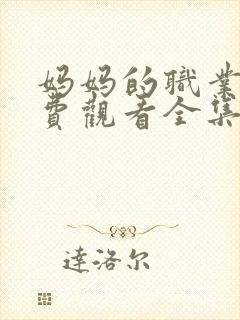 妈妈的職業
費觀看全集
達洛尔